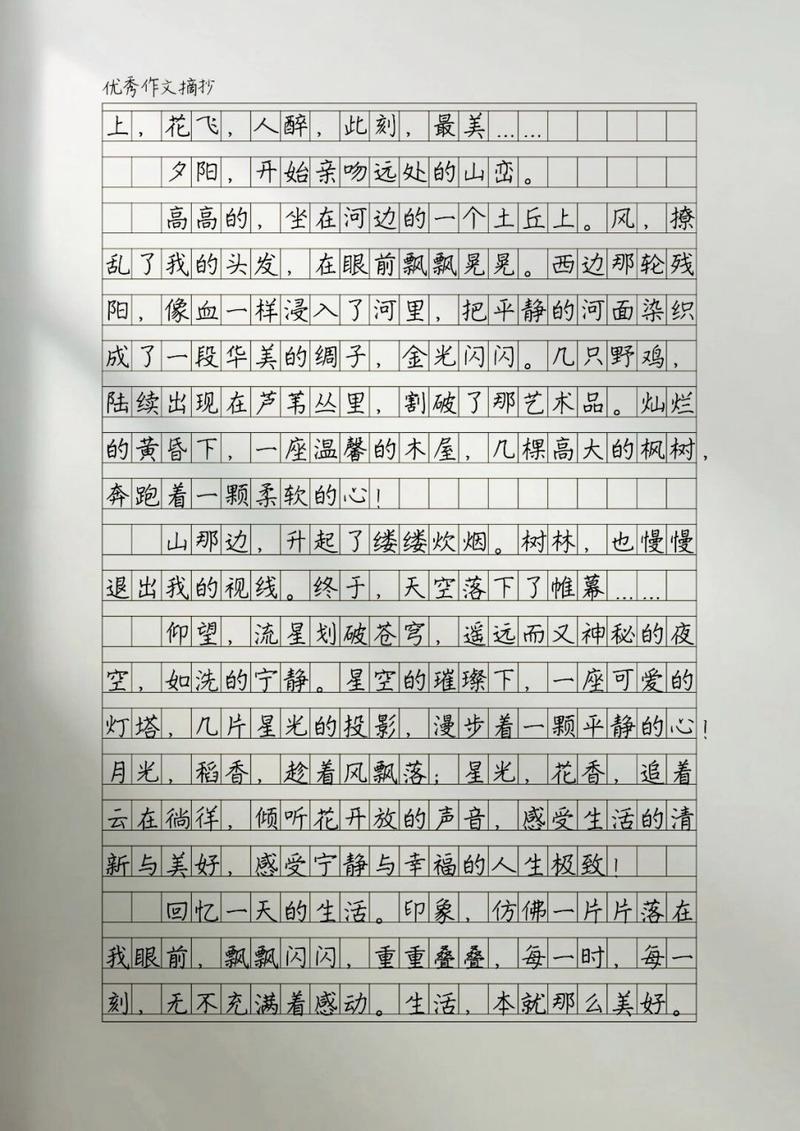 优秀作文摘抄
上，花飞，人醉，此刻，最美……
夕阳，开始亲吻远处的山峦。
高高的，坐在河边的一个土丘上。风，撩
乱了我的头发，在眼前飘飘晃晃。西边那轮残
阳，像血一样浸入了河里，把平静的河面染织
成了一段华美的绸子，金光闪闪。几只野鸡，
陆续出现在芦苇丛里，割破了那艺术品。灿烂
的黄昏下，一座温馨的木屋，几棵高大的枫树，
奔跑着一颗柔软的心！
山那边，升起了缕缕炊烟。树林，也慢慢
退出我的视线。终于，天空落下了帷幕……
仰望，流星划破苍穹，遥远而又神秘的夜
空，如洗的宁静。星空的璀璨下，一座可爱的
灯塔，几片星光的投影，漫步着一颗平静的心！
月光，稻香，趁着风飘落；星光，花香，追着
云在徜徉，倾听花开放的声音，感受生活的清
新与美好，感受宁静与幸福的人生极致！
回忆一天的生活。印象，仿佛一片片落在
我眼前，飘飘闪闪，重重叠叠，每一时，每一
刻，无不充满着感动。生活，本就那么美好。